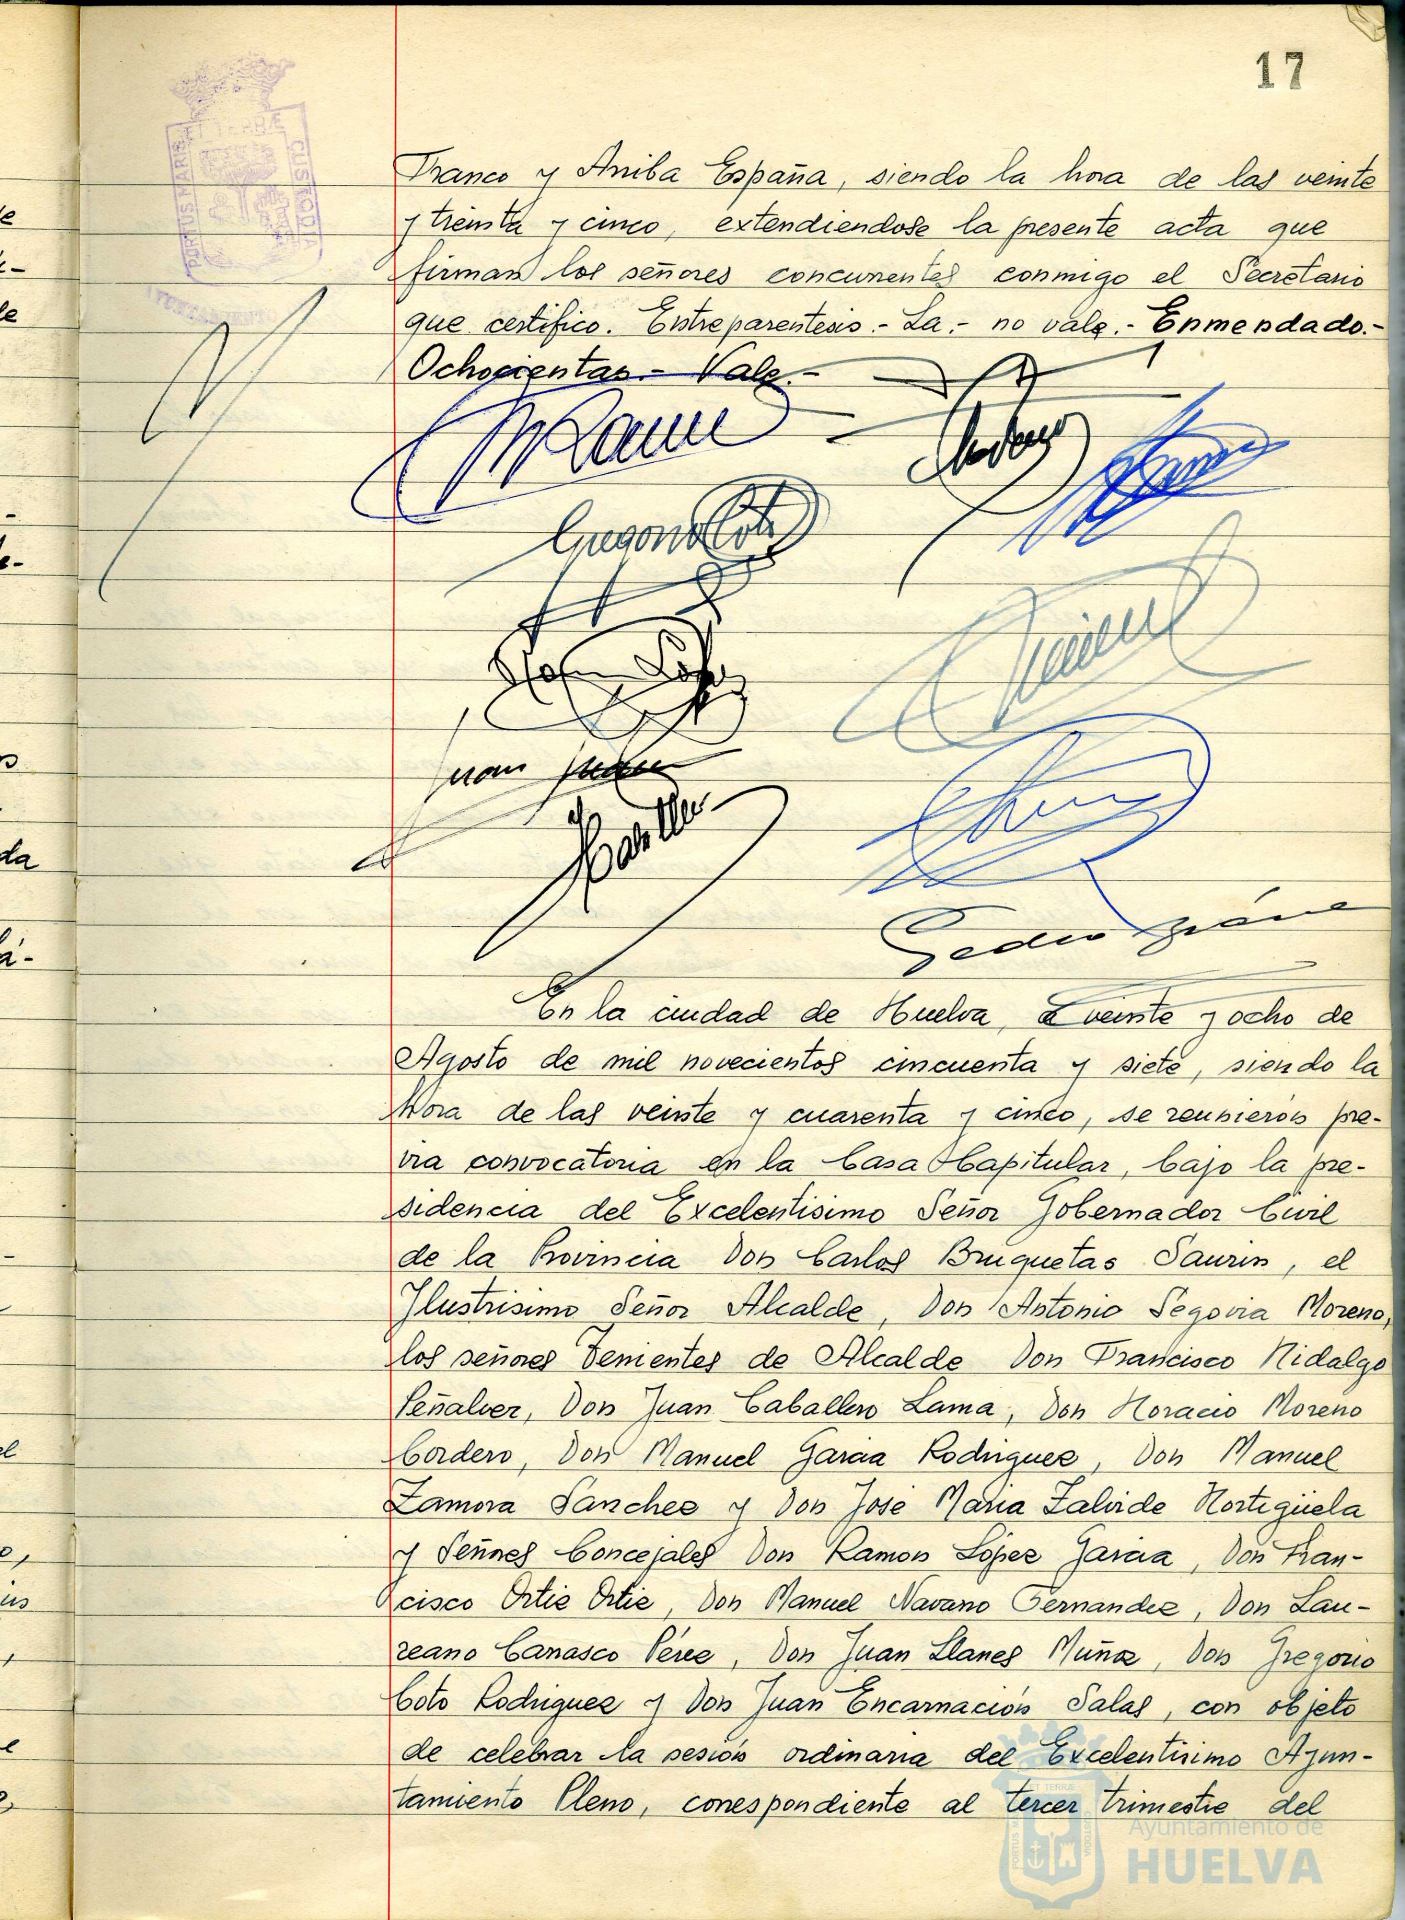 17
PORTUS MARIS ET TERRÆ CUSTODIA
AYUNTAMIENTO
Franco y Arriba España, siendo la hora de las veinte
y treinta y cinco, extendiendose la presente acta que
firman los señores concurrentes conmigo el Secretario
que certifico. Entreparentesis.- La.- no vale.- Enmendado.-
Ochocientas.- Vale.-
Gregorio Coto
Ramon López
Juan
Pedro
En la ciudad de Huelva, a veinte y ocho de
Agosto de mil novecientos cincuenta y siete, siendo la
hora de las veinte y cuarenta y cinco, se reunieron pre-
via convocatoria en la Casa Capitular, bajo la pre-
sidencia del Excelentisimo Señor Gobernador Civil
de la Provincia Don Carlos Bruquetas Saurin, el
Ilustrisimo Señor Alcalde, Don Antonio Segovia Moreno,
los señores Tenientes de Alcalde Don Francisco Hidalgo
Peñalver, Don Juan Caballero Lama, Don Horacio Moreno
Cordero, Don Manuel Garcia Rodriguez, Don Manuel
Zamora Sanchez y Don José Maria Zalvide Hortigüela
y Señores Concejales Don Ramon López Garcia, Don Fran-
cisco Ortiz Ortiz, Don Manuel Navarro Fernandez, Don Lau-
reano Carrasco Pérez, Don Juan Llanes Muñoz, Don Gregorio
Coto Rodriguez y Don Juan Encarnación Salas, con objeto
de celebrar la sesión ordinaria del Excelentisimo Ayun-
tamiento Pleno, correspondiente al tercer trimestre del
Ayuntamiento de
HUELVA